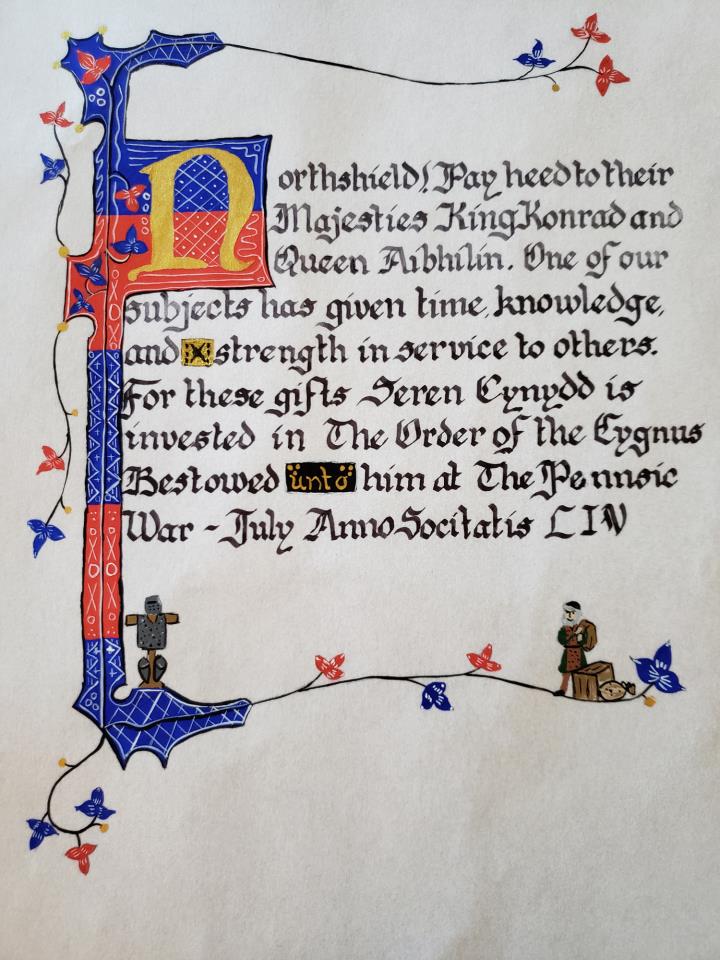 Northshield! Pay heed to their
Majesties King Konrad and
Queen Aibhilin. One of our
subjects has given time, knowledge,
and x strength in service to others.
For these gifts Seren Cynydd is
invested in The Order of the Cygnus
Bestowed ünto him at The Pennsic
War ~ July Anno Socitatis LIV